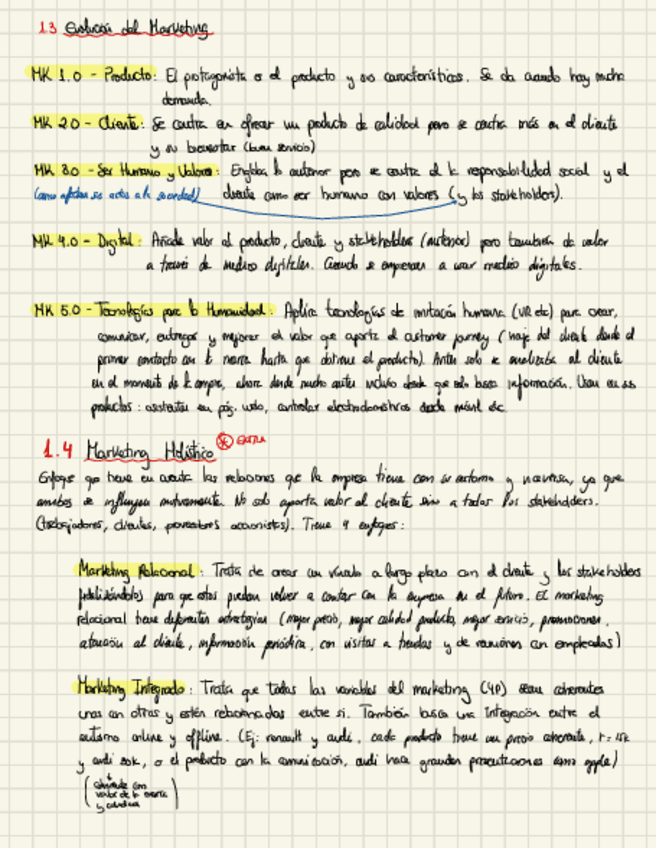 1.3 Evolución del Marketing
MK 1.0 - Producto: El protagonista es el producto y sus características. Se da cuando hay mucha
demanda.
MK 2.0 - Cliente: Se centra en ofrecer un producto de calidad pero se centra más en el cliente
y su bienestar (buen servicio)
MK 3.0 - Ser Humano y Valores: Engloba lo anterior pero se centra en la responsabilidad social y el
(como afectan sus actos a la sociedad) cliente como ser humano con valores (y los stakeholders).
MK 4.0 - Digital: Añade valor al producto, cliente y stakeholders (anterior) pero también da valor
a través de medios digitales. Cuando se empiezan a usar medios digitales.
MK 5.0 - Tecnologías para la Humanidad: Aplica tecnologías de imitación humana (VR etc) para crear,
comunicar, entregar y mejorar el valor que aporta el customer journey (viaje del cliente desde el
primer contacto con la marca hasta que obtiene el producto). Antes solo se analizaba al cliente
en el momento de la compra, ahora desde mucho antes incluso desde que solo busca información. Usan en sus
productos: asistentes en pág. web, controlar electrodomésticos desde móvil etc.
1.4 Marketing Holístico * EXTRA
Enfoque que tiene en cuenta las relaciones que la empresa tiene con su entorno y viceversa, ya que
ambos se influyen mutuamente. No solo aporta valor al cliente sino a todos los stakeholders.
(trabajadores, clientes, proveedores accionistas). Tiene 4 enfoques:
Marketing Relacional: Trata de crear un vínculo a largo plazo con el cliente y los stakeholders
fidelizándolos para que estos puedan volver a contar con la empresa en el futuro. El marketing
relacional tiene diferentes estrategias (mejor precio, mejor calidad producto, mejor servicio, promociones,
atención al cliente, información periódica, con visitas a tiendas y de reuniones con empleados)
Marketing Integrado: Trata que todas las variables del marketing (4P) sean coherentes
unas con otras y estén relacionadas entre si. También busca una Integración entre el
entorno online y offline. (Ej: renault y audi, cada producto tiene un precio coherente, r = 15k
y audi 50k, o el producto con la comunicación, audi hace grandes presentaciones como apple)
(coherente con
valor de la marca
y calidad)